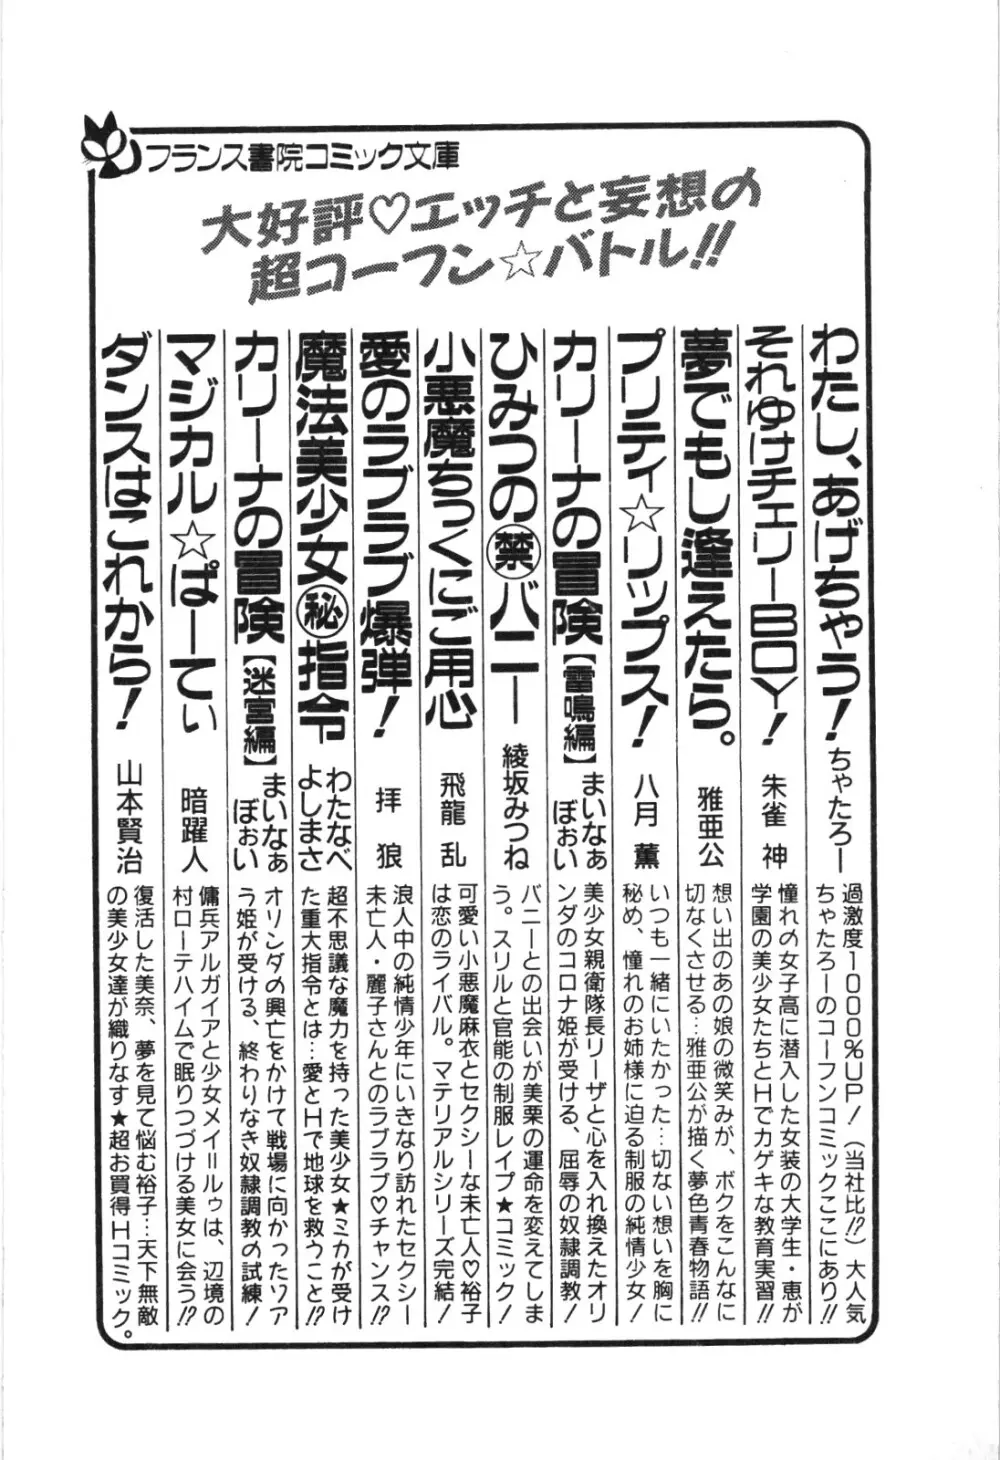 フランス書院コミック文庫
大好評♡エッチと妄想の
超コーフン☆バトル!!
わたし、あげちゃう!
ちゃたろー
過激度1000%UP!(当社比!?)大人気
ちゃたろーのコーフンコミックここにあり!!
それゆけチェリーBOY!
朱雀 神
憧れの女子高に潜入した女装の大学生・恵が
学園の美少女たちとHでカゲキな教育実習!!
夢でもし逢えたら。
雅亜公
想い出のあの娘の微笑みが、ボクをこんなに
切なくさせる…雅亜公が描く夢色青春物語!!
プリティ☆リップス!
八月 薫
いつも一緒にいたかった…切ない想いを胸に
秘め、憧れのお姉様に迫る制服の純情少女!
カリーナの冒険【雷鳴編】
まいなぁ
ぼぉい
美少女親衛隊長リーザと心を入れ換えたオリ
ンダのコロナ姫が受ける、屈辱の奴隷調教!
ひみつの㊝バニー
綾坂みつね
バニーとの出会いが美栗の運命を変えてしま
う。スリルと官能の制服レイプ★コミック!
小悪魔ちっくにご用心
飛龍 乱
可愛い小悪魔麻衣とセクシーな未亡人♡裕子
は恋のライバル。マテリアルシリーズ完結!
愛のラブラブ爆弾!
拝 狼
浪人中の純情少年にいきなり訪れたセクシー
未亡人・麗子さんとのラブラブ♡チャンス!?
魔法美少女㊙指令
わたなべ
よしまさ
超不思議な魔力を持った美少女★ミカが受け
た重大指令とは…愛とHで地球を救うこと!?
カリーナの冒険【迷宮編】
まいなぁ
ぼぉい
オリンダの興亡をかけて戦場に向かったソア
う姫が受ける、終わりなき奴隷調教の試練!
マジカル☆ぱーてぃ
暗躍人
傭兵アルガイアと少女メイ=ルゥは、辺境の
村ローテハイムで眠りつづける美女に会う!?
ダンスはこれから!
山本賢治
復活した美奈、夢を見て悩む裕子…天下無敵
の美少女達が織りなす★超お買得Hコミック。